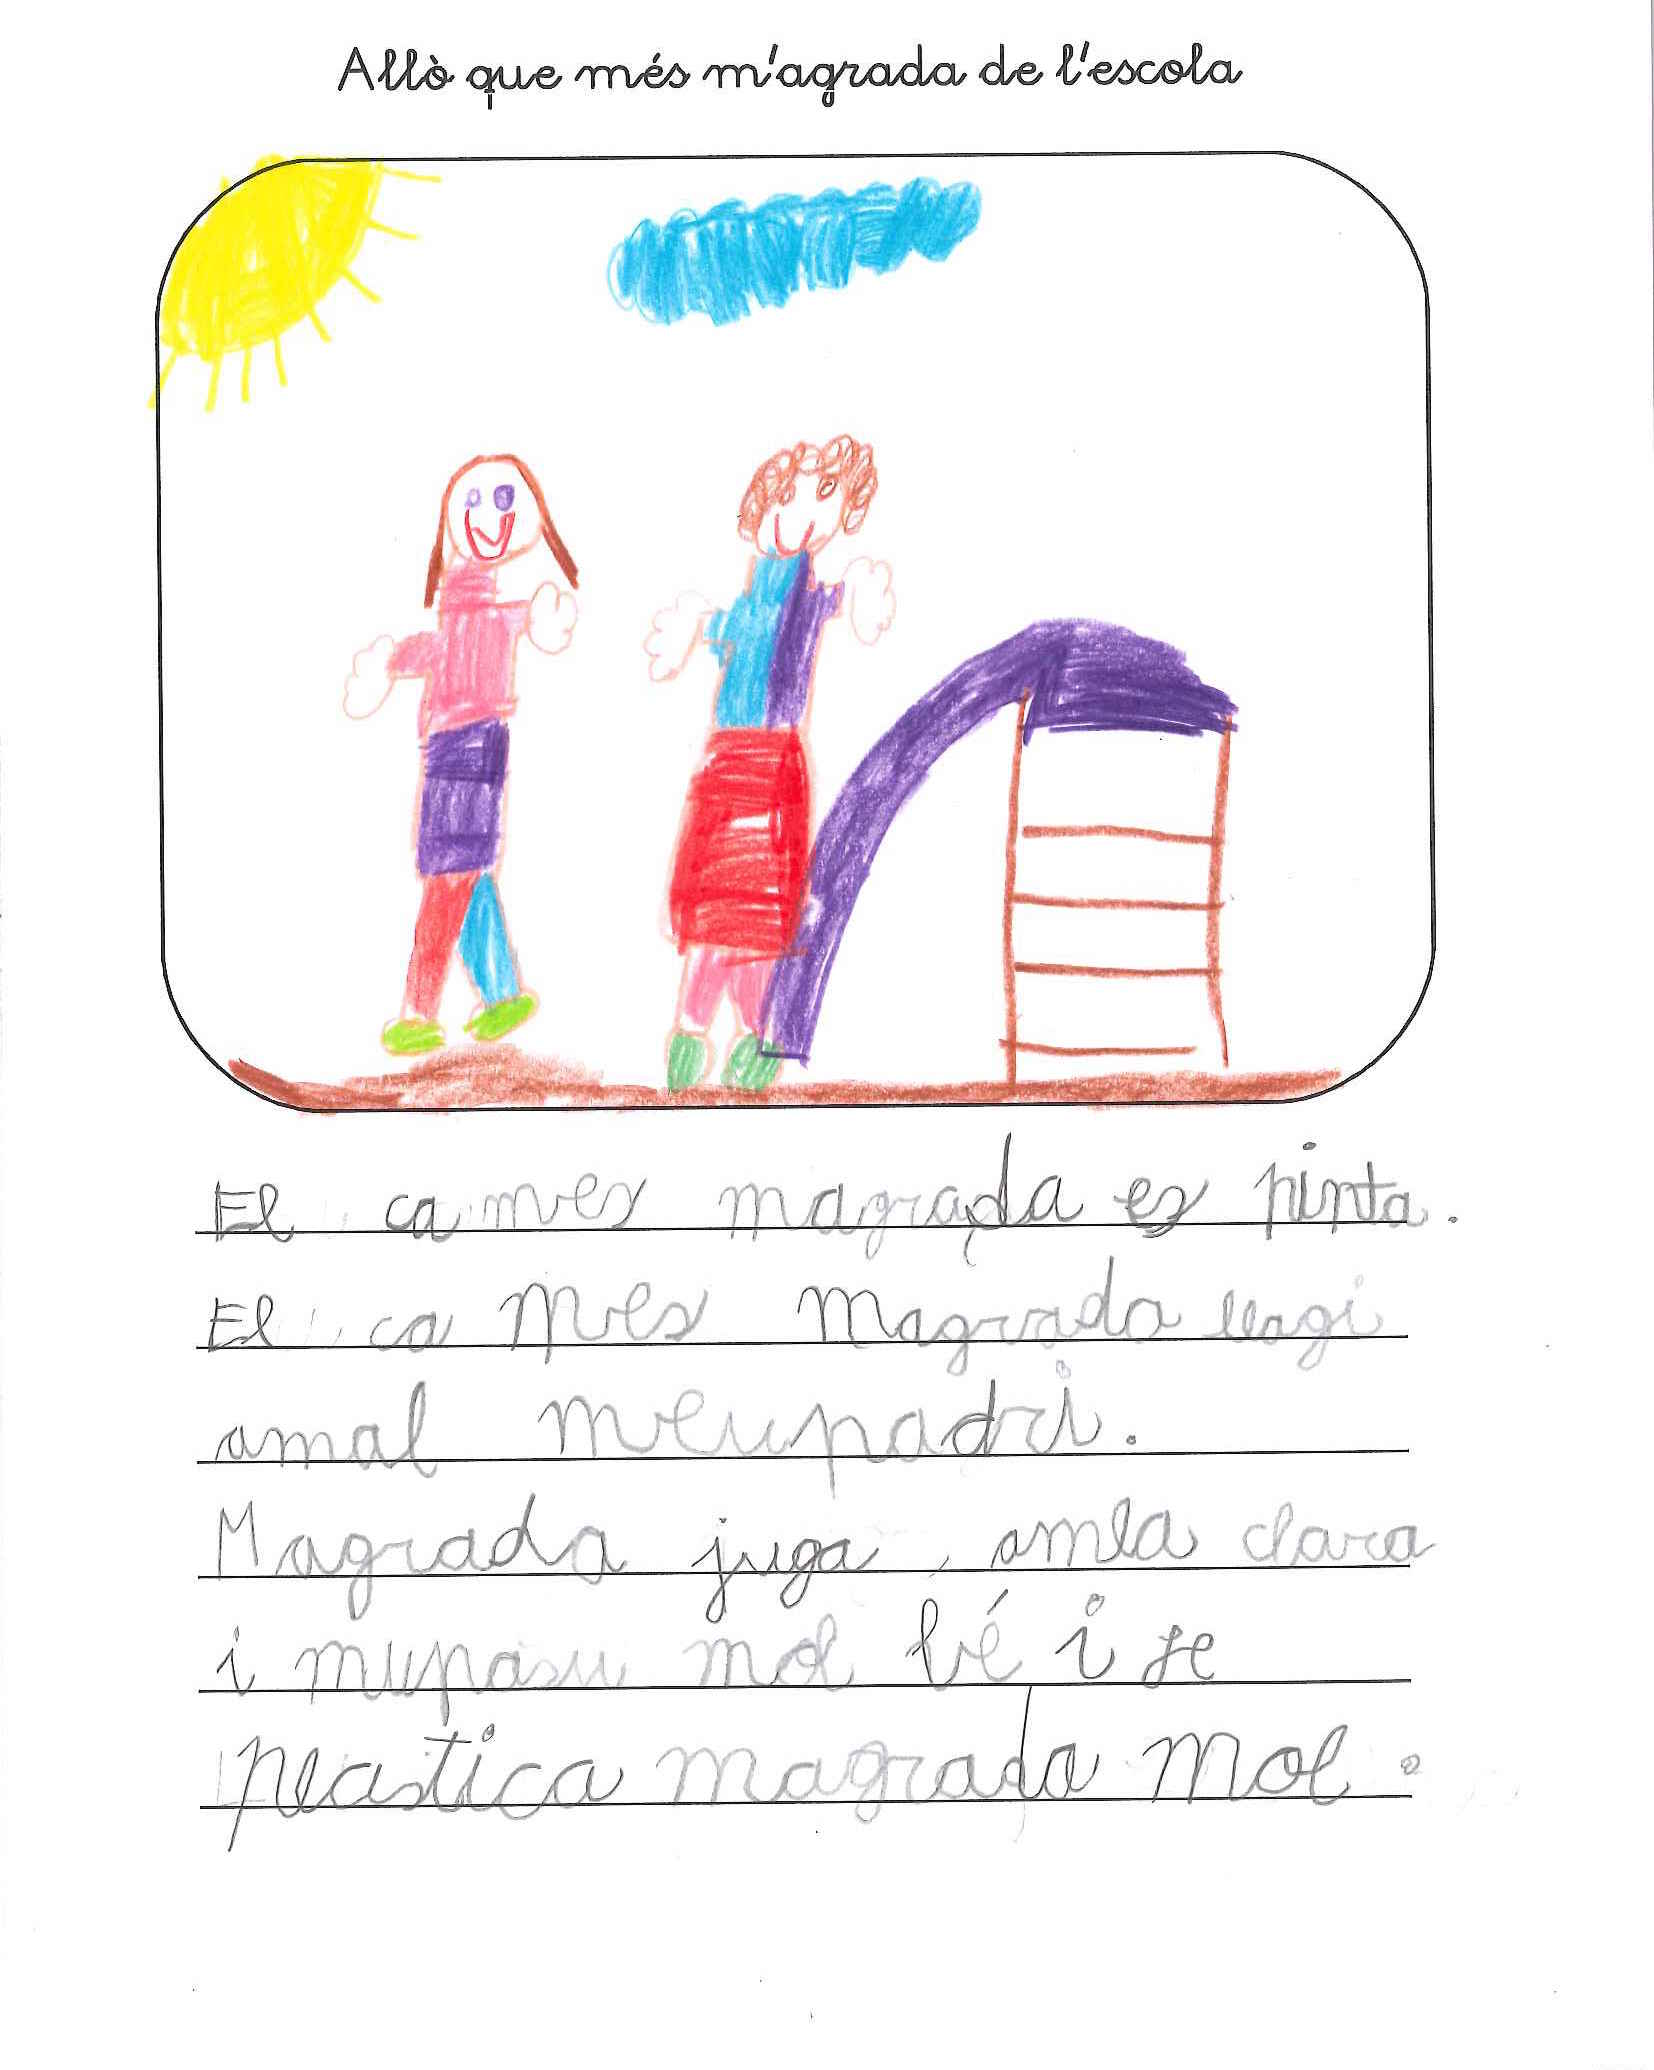 Allò que més m'agrada de l'escola
El ca mes magrada es pinta.
El ca mes Magrada llagi
amal meupadri.
Magrada juga amla clara
i mupasu mol bé i fe
plastica magrada mol.